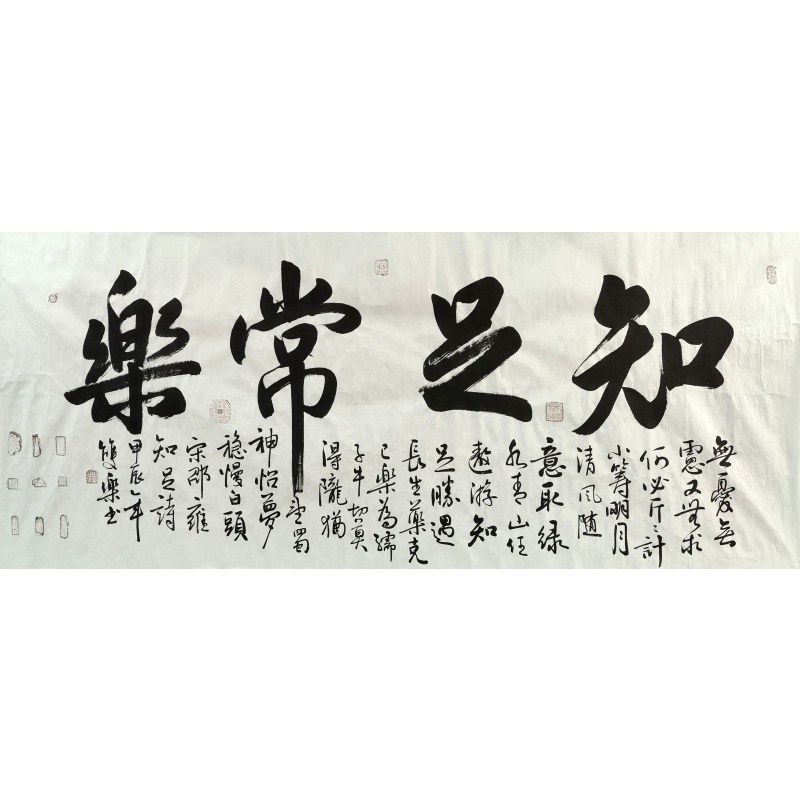 知足常樂
無憂無
慮又無求
何必斤〻計
小籌明月
清風隨
意取綠
水青山任
遨游知
足勝過
長生藥克
己樂為孺
子牛切莫
得隴猶
望蜀
神怡夢
穩慢白頭
宋邵雍
知足詩
甲辰年
雙樂书